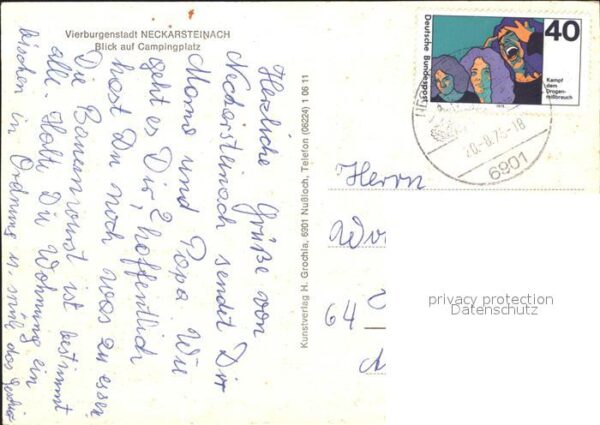 Vierburgenstadt NECKARSTEINACH
Blick auf Campingplatz
Herzliche Grüße von
Neckarsteinach sendet Dir
Mama und Papa. Wie
geht es Dir? hoffentlich
hast Du noch was zu essen
Die Bauernwurst ist bestimmt
alle. Halte Die Wohnung ein
bischen in Ordnung u. spül das
Kunstverlag H. Grochla, 6901 Nußloch, Telefon (06224) 1 06 11
Deutsche Bundespost
40
Kampf
dem
Drogen-
mißbrauch
1975
20.-8.75-18
6901
Herrn
64
privacy protection
Datenschutz